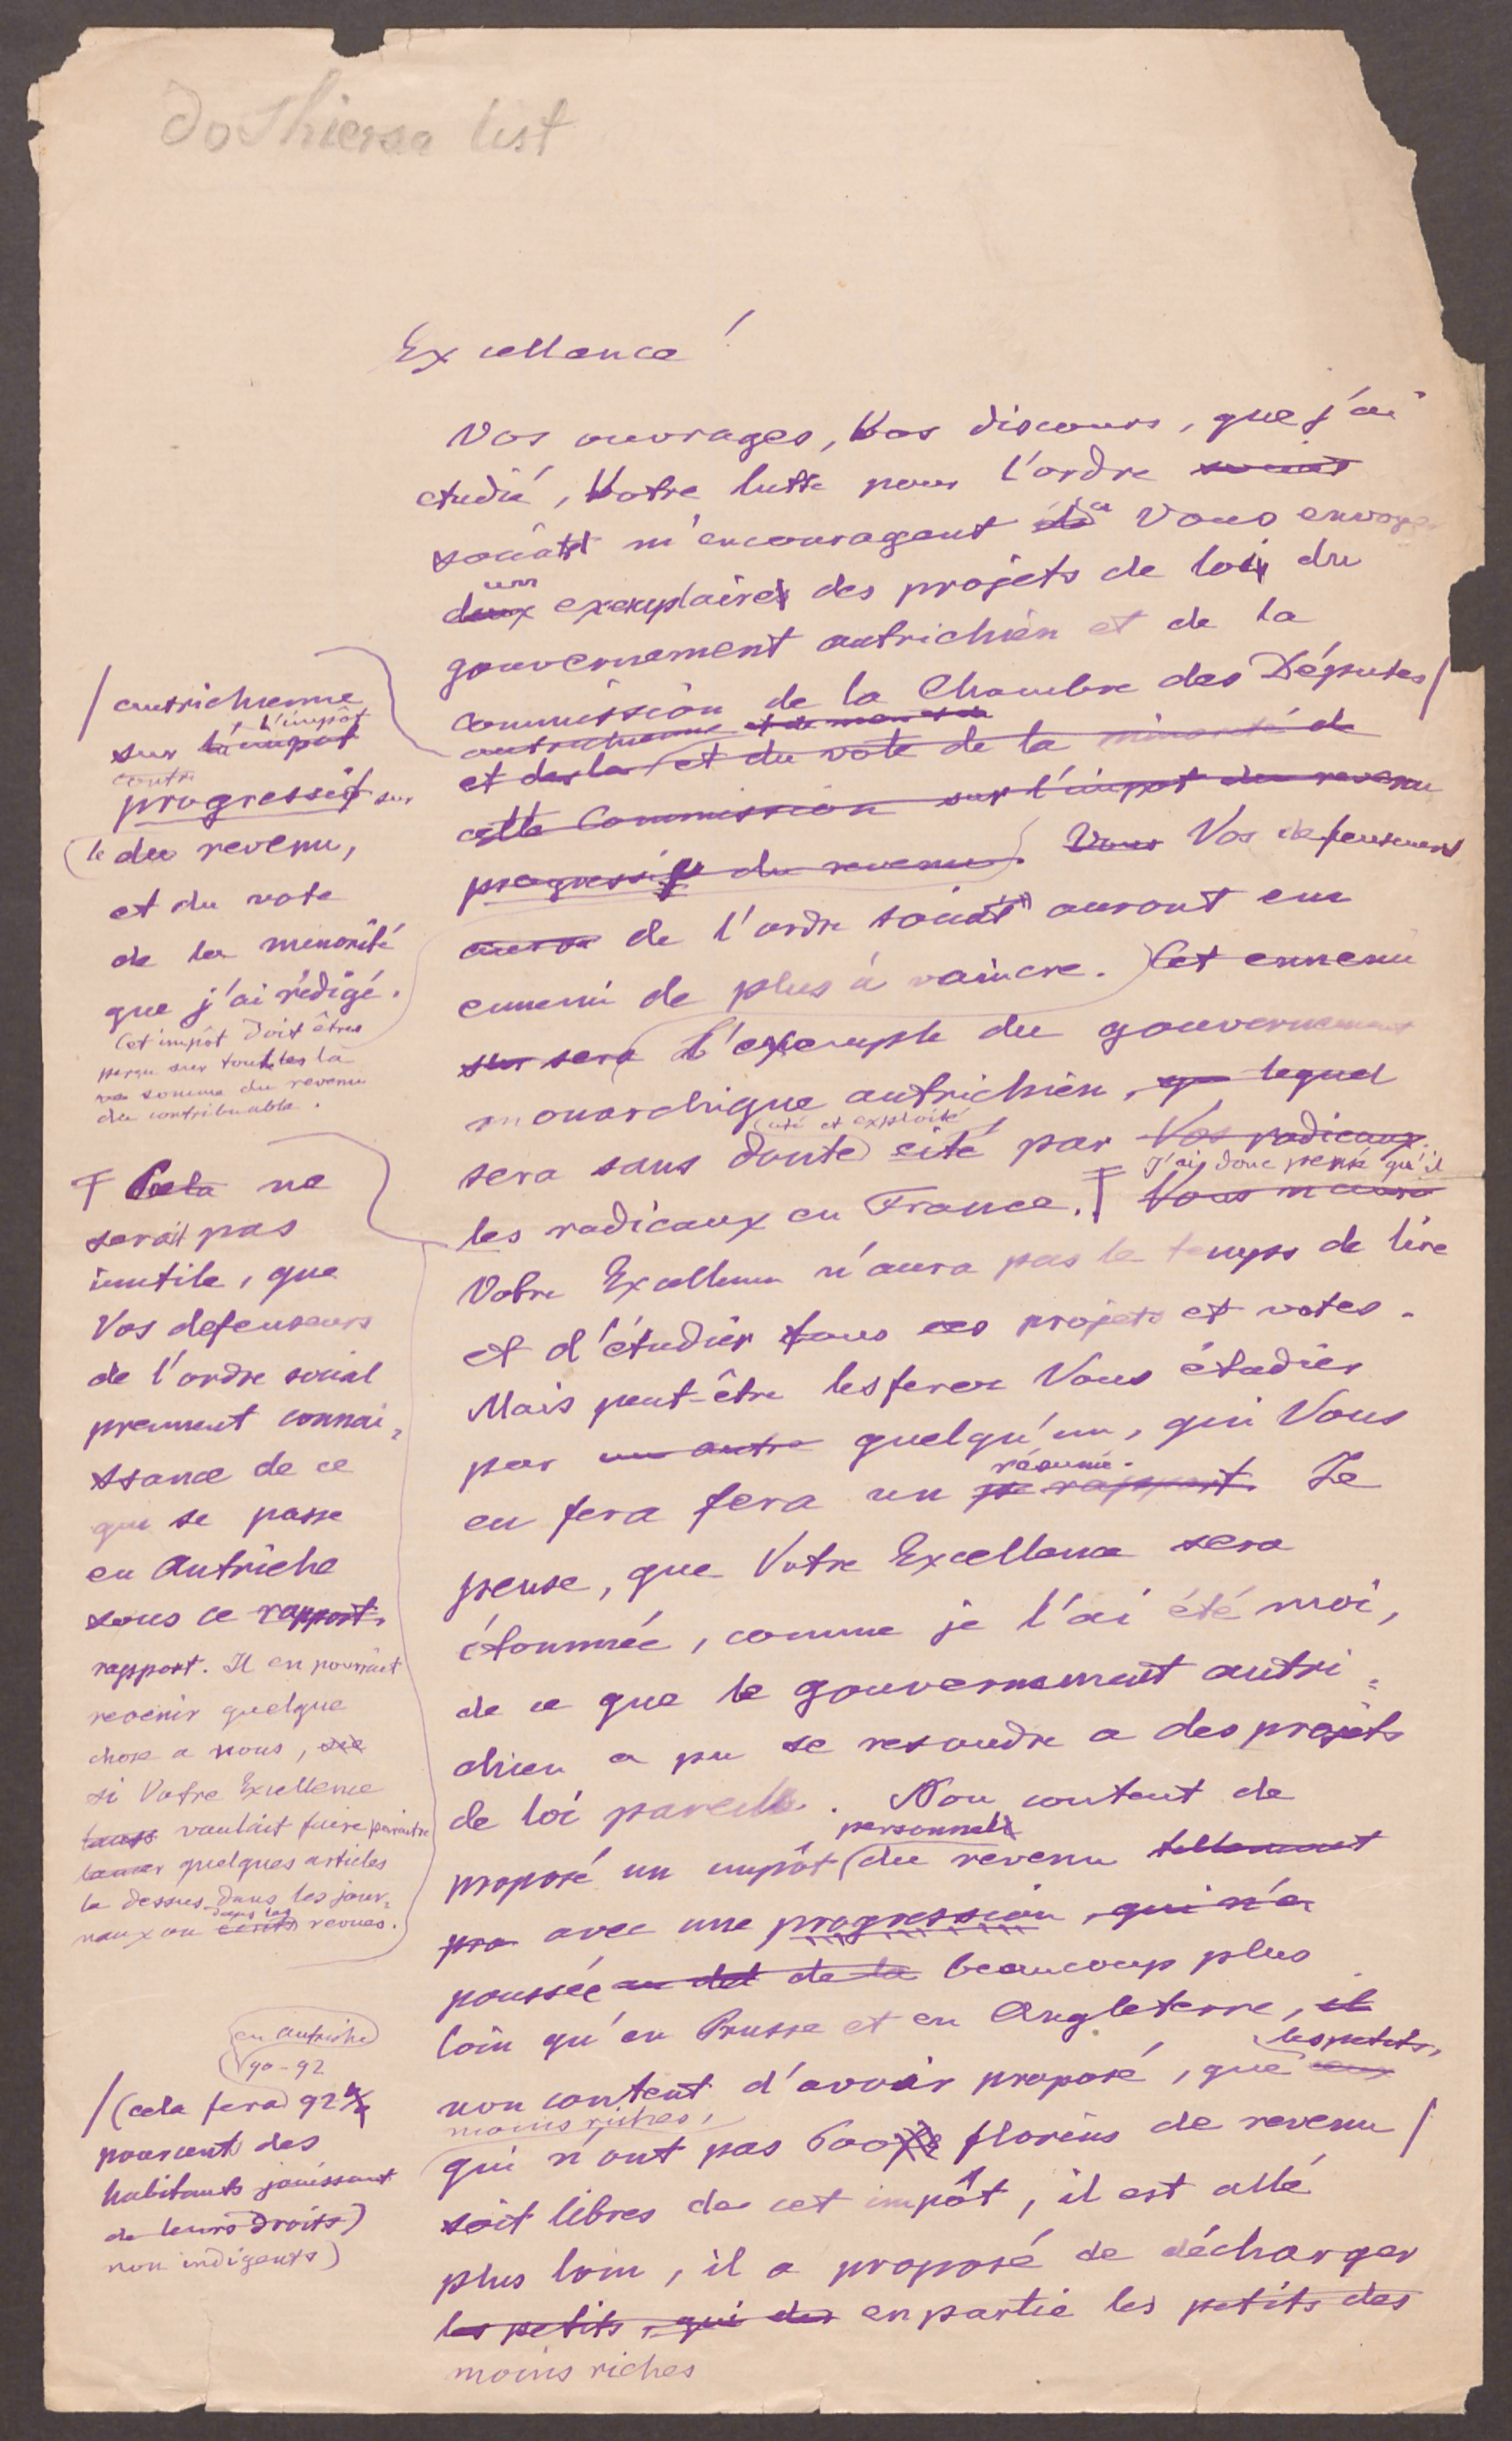 do Thiersa list
Excellence!
Vos ouvrages, Vos discours, que j'ai
etudié, Votre lutte pour l'ordre social
social m'encouragent a Vous envoyer
deux un exemplaire des projets de loi du
gouvernement autrichien et de la
commission de la Chambre des Députes /
autrichienne et de
et des la et du vote de la minorité de
cette Commission sur l'impot du revenu
progressif du revenu. Vous Vos defenseurs
de l'ordre social auront un
ennemi de plus à vaincre. Cet ennemi
sera L'exemple du gouvernement
monarchique autrichien, lequel
(cité et exploité
sera sans doute) cité par Vos radicaux
J'ai donc pensé qu'il
les radicaux en France. Vous n'aura
Votre Excellence n'aura pas le temps de lire
et d'étudier tous ces projets et votes.
Mais peut-être les ferez Vous étudier
par un autre quelqu'un, qui Vous
résumé.
en fera fera un rapport. Je
pense, que Votre Excellence sera
étonnée, comme je l'ai été moi,
de ce que le gouvernement autri=
chien a pu se resoudre a des projets
de loi pareils. Non content de
personnel
proposé un impôt (du revenu tellement
pro avec une progression, qui n'a
poussée au del de la beaucoup plus
loin qu'en Prusse et en Angleterre, il
les petits,
non content d'avoir proposé, que ceux
moins riches,
qui n'ont pas 600 florins de revenu /
soit libres de cet impôt, il est allé
plus loin, il a proposé de décharger
les petits, qui des en partie les petits des
moins riches
/ autrichienne
l'impôt
sur l'impot
contr
progressif sur
(le du revenu,
et du vote
de la minorité
que j'ai rédigé.
Cet impôt doit être
perçu sur toutes la
somme du revenu
du contribuable.
Cela ne
serait pas
inutile, que
Vos defenseurs
de l'ordre social
prennent connai=
ssance de ce
qui se passe
en Autriche
sous ce rapport.
rapport. Il en pourrait
revenir quelque
chose a nous,
si Votre Excellence
voulait faire paraitre
lancer quelques articles
la dessus dans les jour=
dans les
naux ou écrits revues.
en Autriche
90-92
/ (cela fera 92
pourcent des
habitants jouissant
de leurs droits)
non indigents)